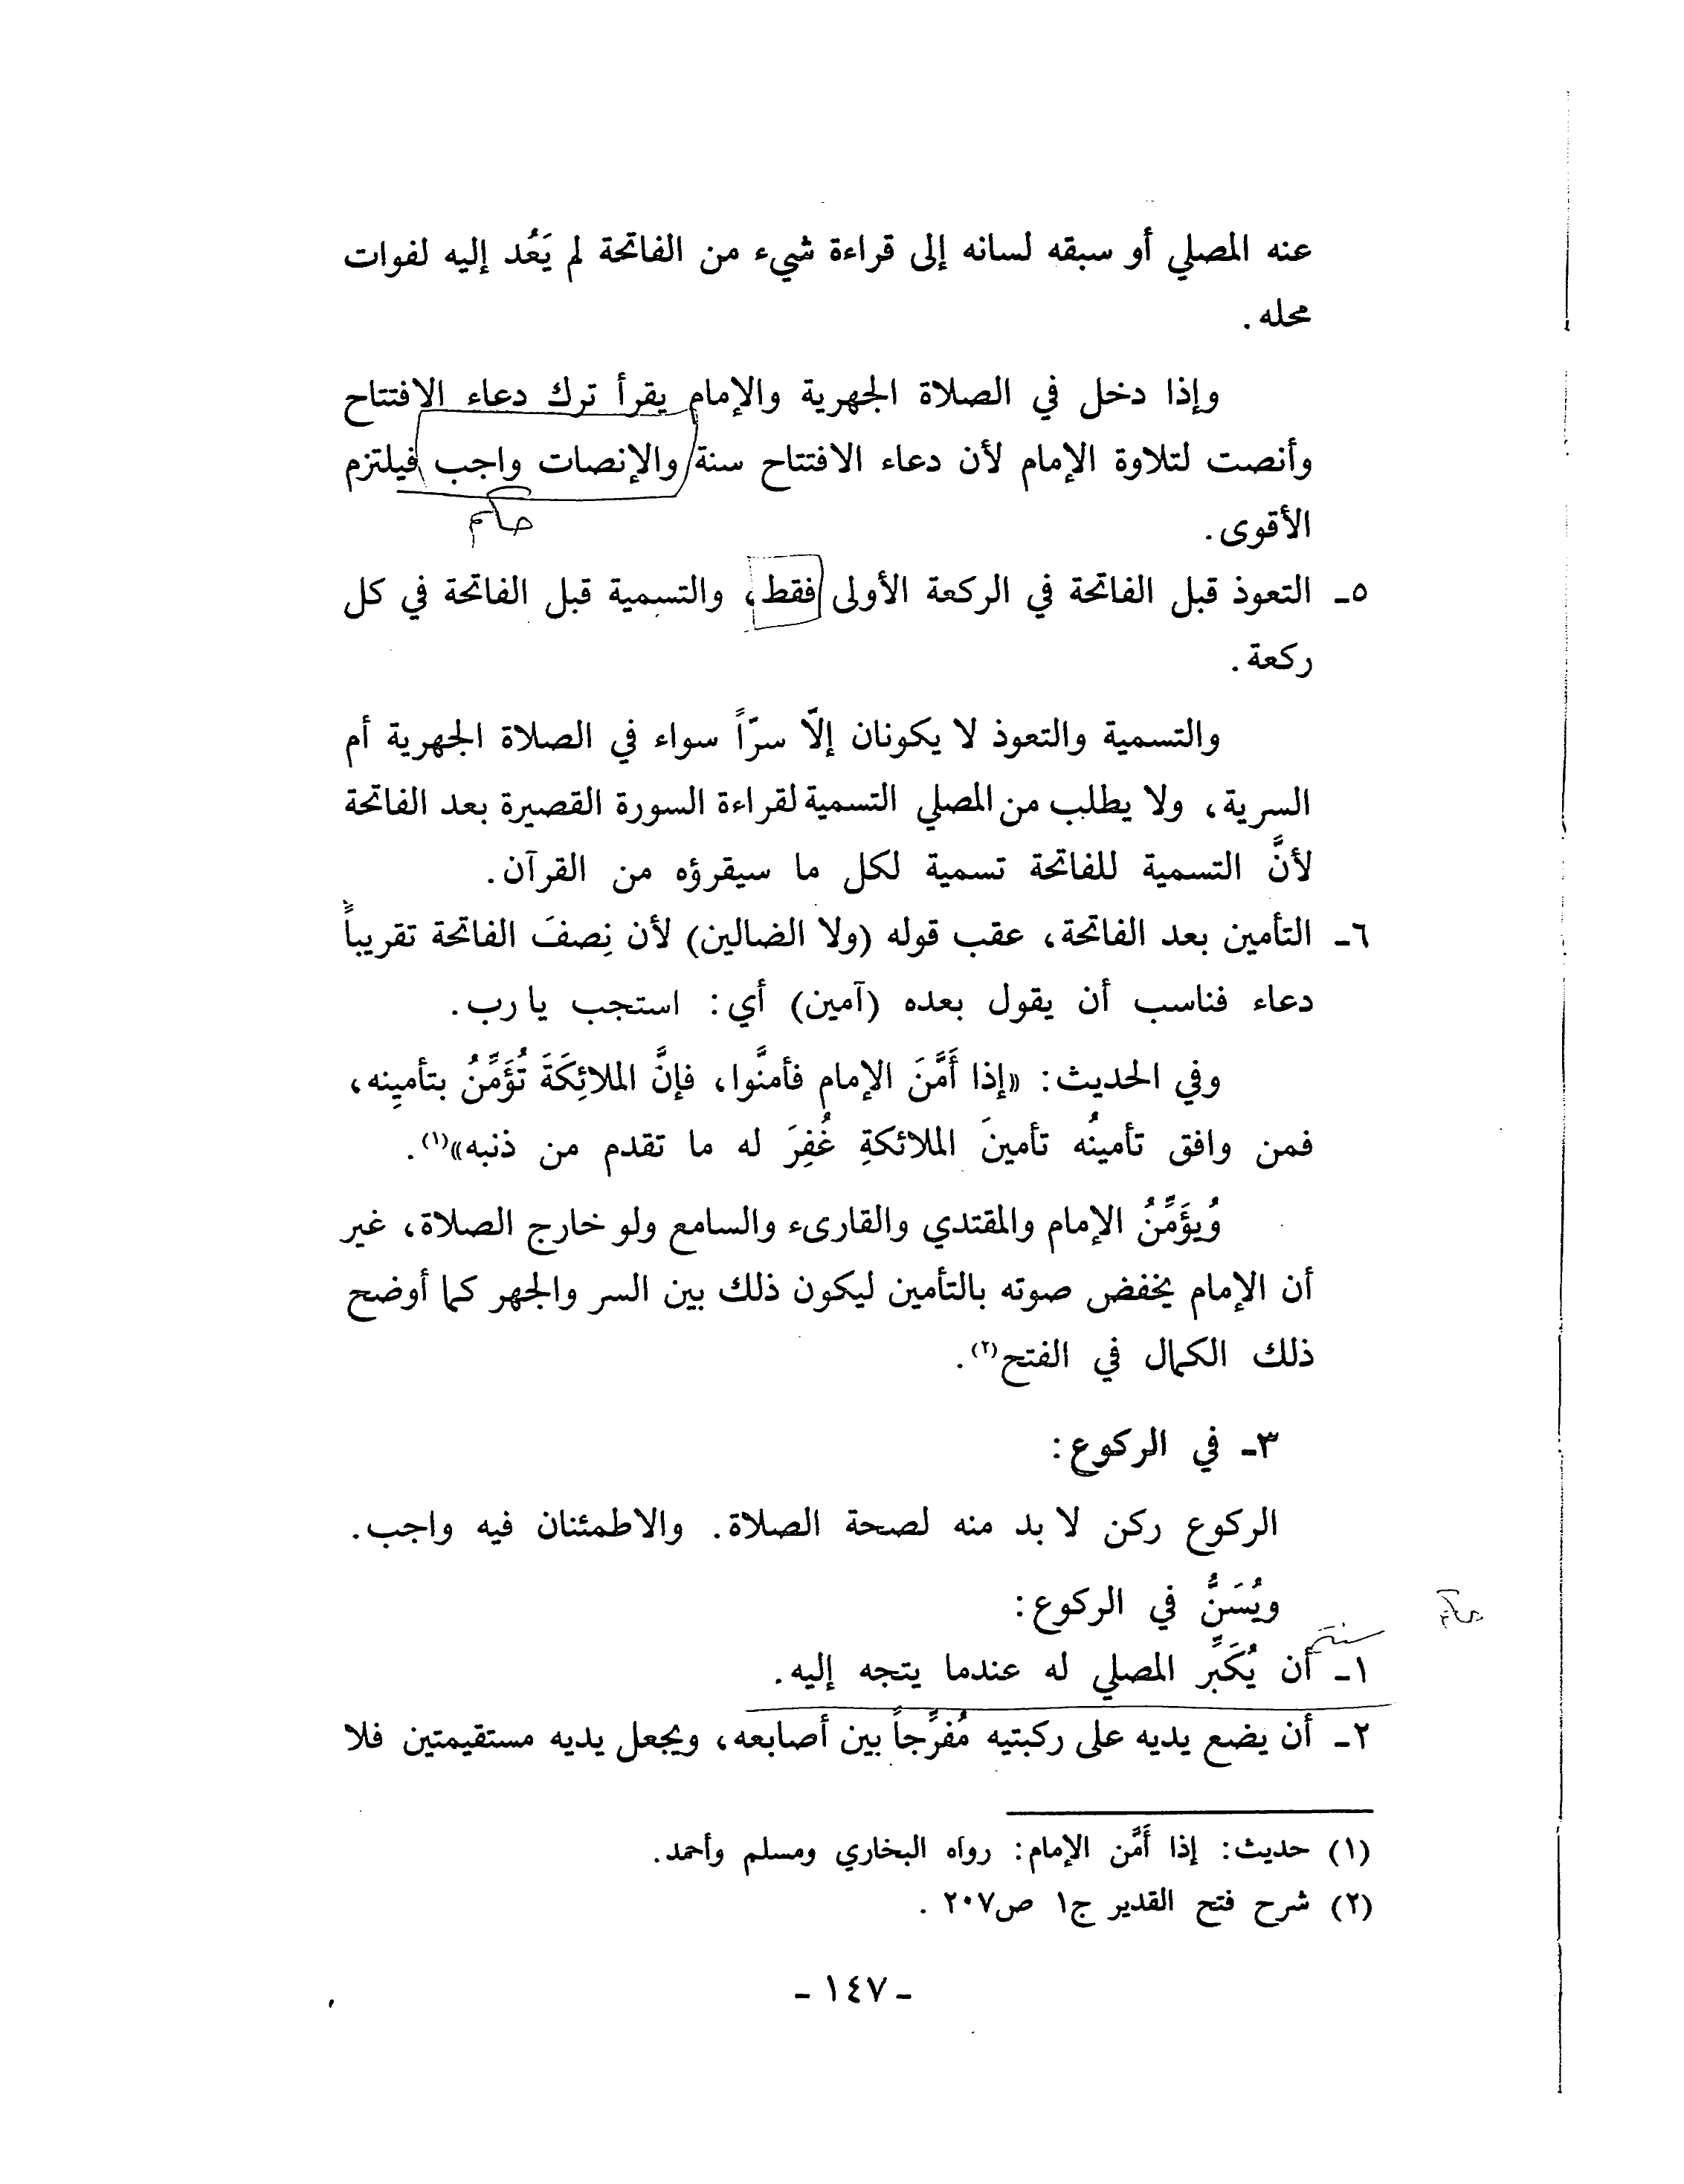 عنه المصلي أو سبقه لسانه إلى قراءة شيء من الفاتحة لم يَعُد إليه لفوات
محله.
وإذا دخل في الصلاة الجهرية والإمام يقرأ ترك دعاء الافتتاح
وأنصت لتلاوة الإمام لأن دعاء الافتتاح سنة والإنصات واجب فيلتزم
الأقوى.
٥ـ التعوذ قبل الفاتحة في الركعة الأولى فقط، والتسمية قبل الفاتحة في كل
ركعة.
والتسمية والتعوذ لا يكونان إلّا سرّاً سواء في الصلاة الجهرية أم
السرية، ولا يطلب من المصلي التسمية لقراءة السورة القصيرة بعد الفاتحة
لأنَّ التسمية للفاتحة تسمية لكل ما سيقرؤه من القرآن.
٦ـ التأمين بعد الفاتحة، عقب قوله (ولا الضالين) لأن نِصفَ الفاتحة تقريباً
دعاء فناسب أن يقول بعده (آمين) أي: استجب يا رب.
وفي الحديث: «إذا أَمَّنَ الإمام فأمنَّوا، فإنَّ الملائِكَةَ تُؤَمِّنُ بتأمينِه،
فمن وافق تأمينُه تأمينَ الملائكةِ غُفِرَ له ما تقدم من ذنبه»(١).
وُيؤَمِّنُ الإمام والمقتدي والقارىء والسامع ولو خارج الصلاة، غير
أن الإمام يخفض صوته بالتأمين ليكون ذلك بين السر والجهر كما أوضح
ذلك الكمال في الفتح(٢).
٣ـ في الركوع:
الركوع ركن لا بد منه لصحة الصلاة. والاطمئنان فيه واجب.
ويُسَنُّ في الركوع:
١ـ أن يُكَبِّر المصلي له عندما يتجه إليه.
٢ـ أن يضع يديه على ركبتيه مُفرِّجاً بين أصابعه، ويجعل يديه مستقيمتين فلا
(١) حديث: إذا أَمَّن الإمام: رواه البخاري ومسلم وأحمد.
(٢) شرح فتح القدير ج١ ص٢٠٧ .
ـ ١٤٧ ـ